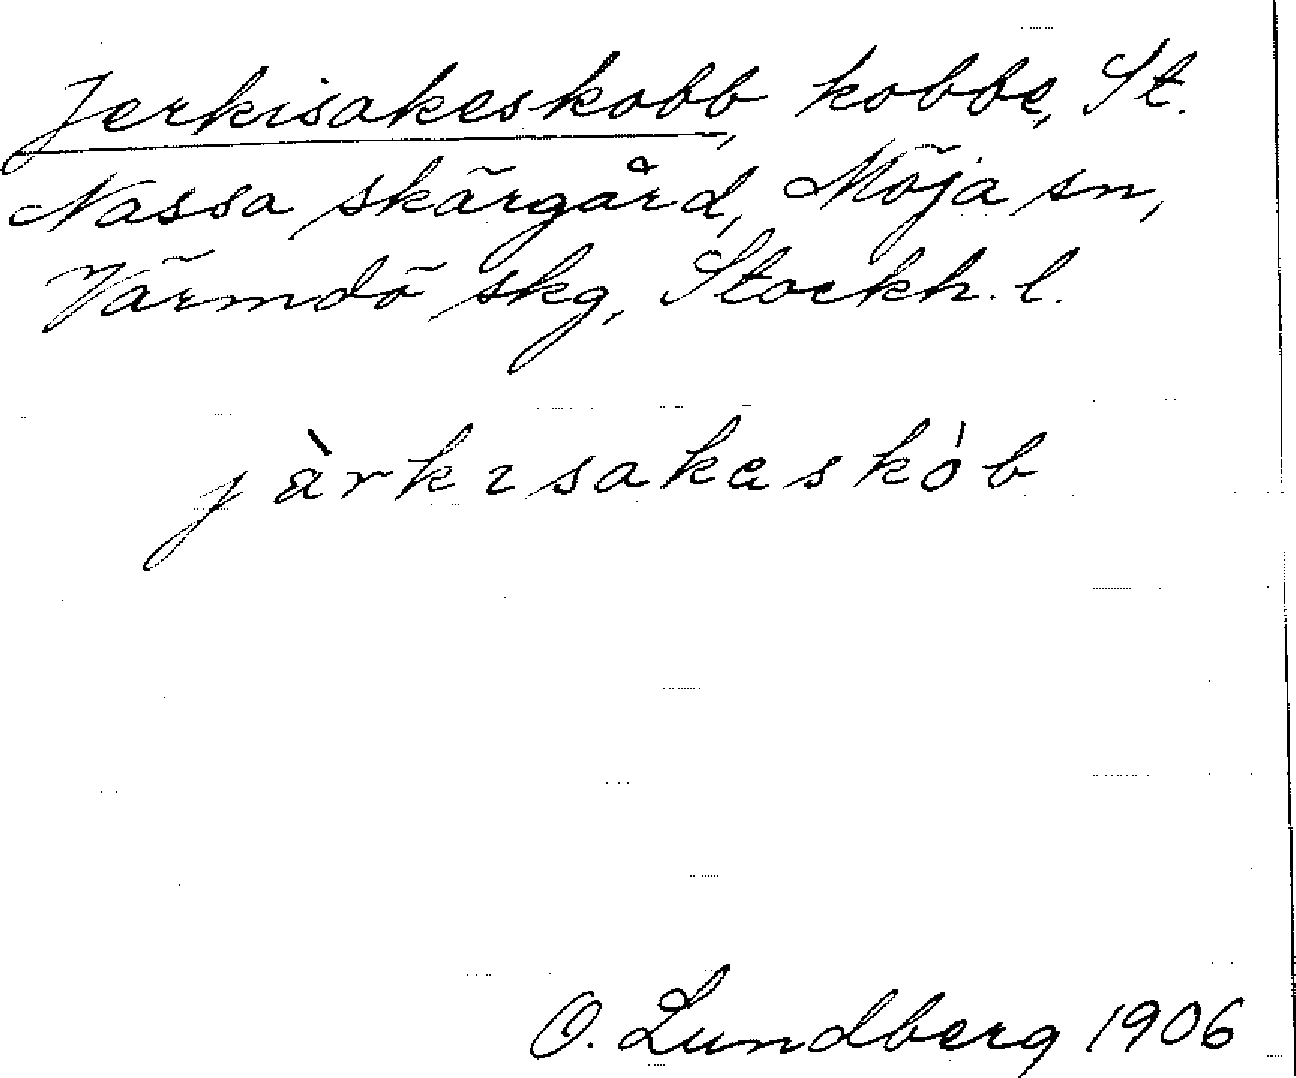 Jerkisakeskobb, kobbe, St.
Nassa skärgård, Möja sn,
Värmdö skg, Stockh. l.
jàrkısakaskób
O. Lundberg 1906